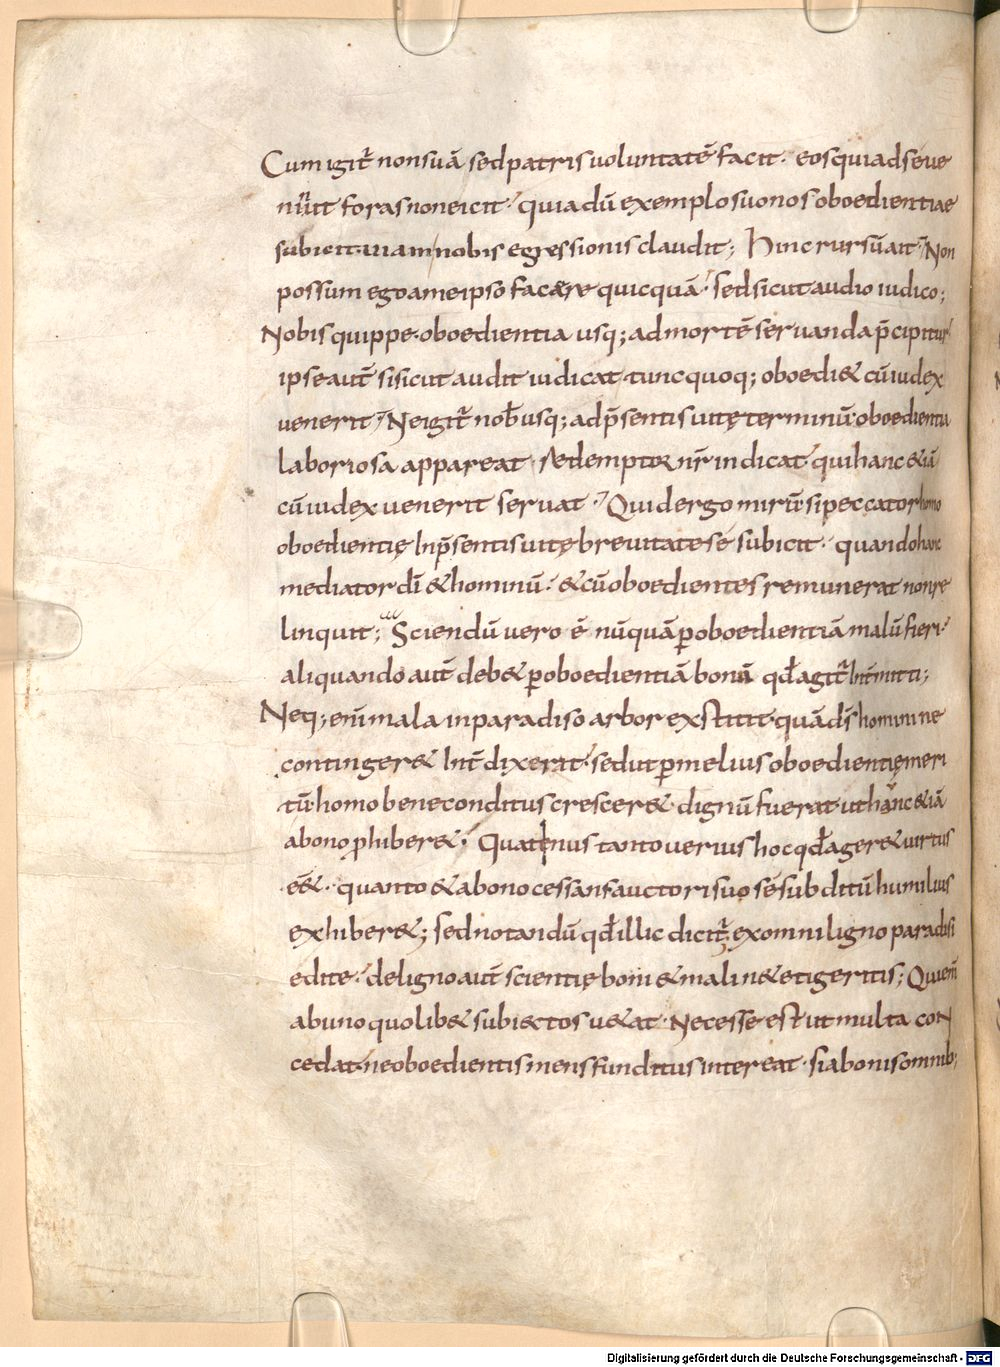 Cum igit̄ non suā sed patris voluntatē facit· eos qui ad se ve
niūt foras non eicit· quia dū exemplo suo nos oboedientiae
subicit· viam nobis egressionis claudit; Hinc rursū ait· Non
possum ego a me ipso facere quicquā· sed sicut audio iudico;
Nobis quippe· oboedientia usq; ad mortē servanda p̄cipitur
ipse aut̄ si sicut audit iudicat· tunc quoq; oboedi& cū iudex
venerit· Ne igit̄ nob̄ usq; ad p̄sentis vitę terminū oboedientia
laboriosa appareat redemptor nr̄ indicat· qui hanc &iā
cū iudex venerit servat· Quid ergo mirū si peccator homo
oboedientię in p̄sentis vitę brevitate se subicit· quando hanc
mediator dī & hominū· & cū oboedientes remunerat non re
linquit; Sciendū vero ē nūquā p̱ oboedientiā malū fieri·
aliquando aut̄ deb& p̱ oboedientiā bonū qđ agit̄ int̄mitti;
Neq; enī mala in paradiso arbor exstitit quā ds̄ homini ne
conting̱er& int̄dixerit· sed ut p̱ melius oboedientię meri
tū homo bene conditus crescer& dignū fuerat ut hanc &iā
a bono ꝓhiber&· Quatenus tanto verius hoc qđ ager& virtus
ēē&· quanto & a bono cessans auctori suo se subditū humilius
exhiber&; sed notandū qđ illic dicit̄ ex omni ligno paradisi
edite· de ligno aut̄ scientię boni & mali ne &etigeritis; Qui enī
ab uno quolib& subiectos v&at· Necesse est ut multa con
cedat· ne oboedientis mens funditus intereat· si a bonis omnib;
Digitalisierung gefördert durch die Deutsche Forschungsgemeinschaft - DFG